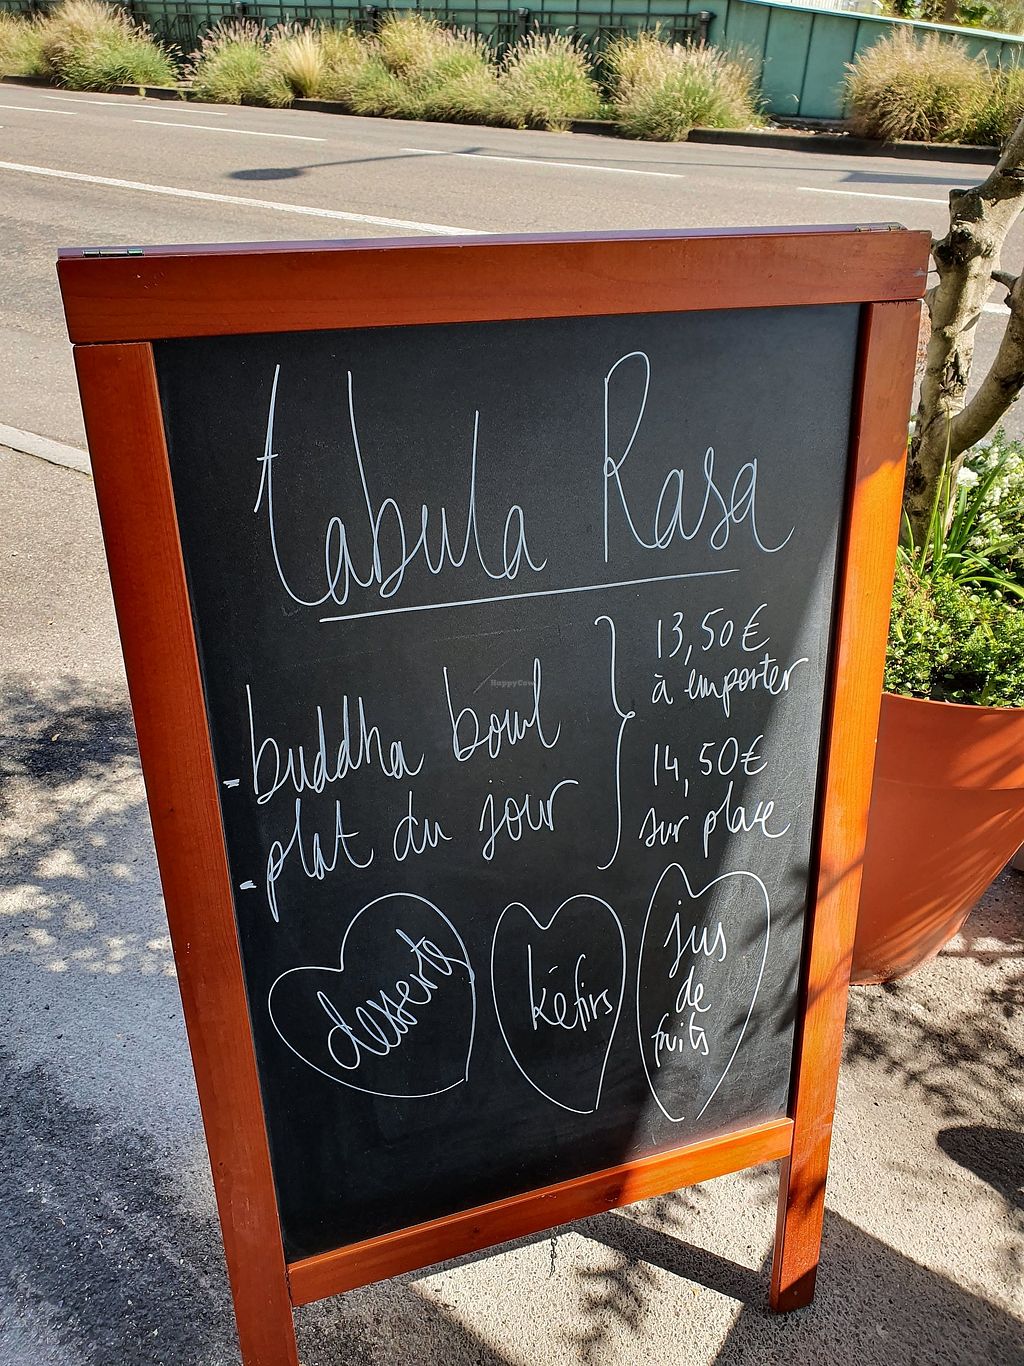 tabula Rasa
- buddha bowl
- plat du jour
13,50€
à emporter
14,50€
sur place
desserts
kéfirs
jus
de
fruits
HappyCow